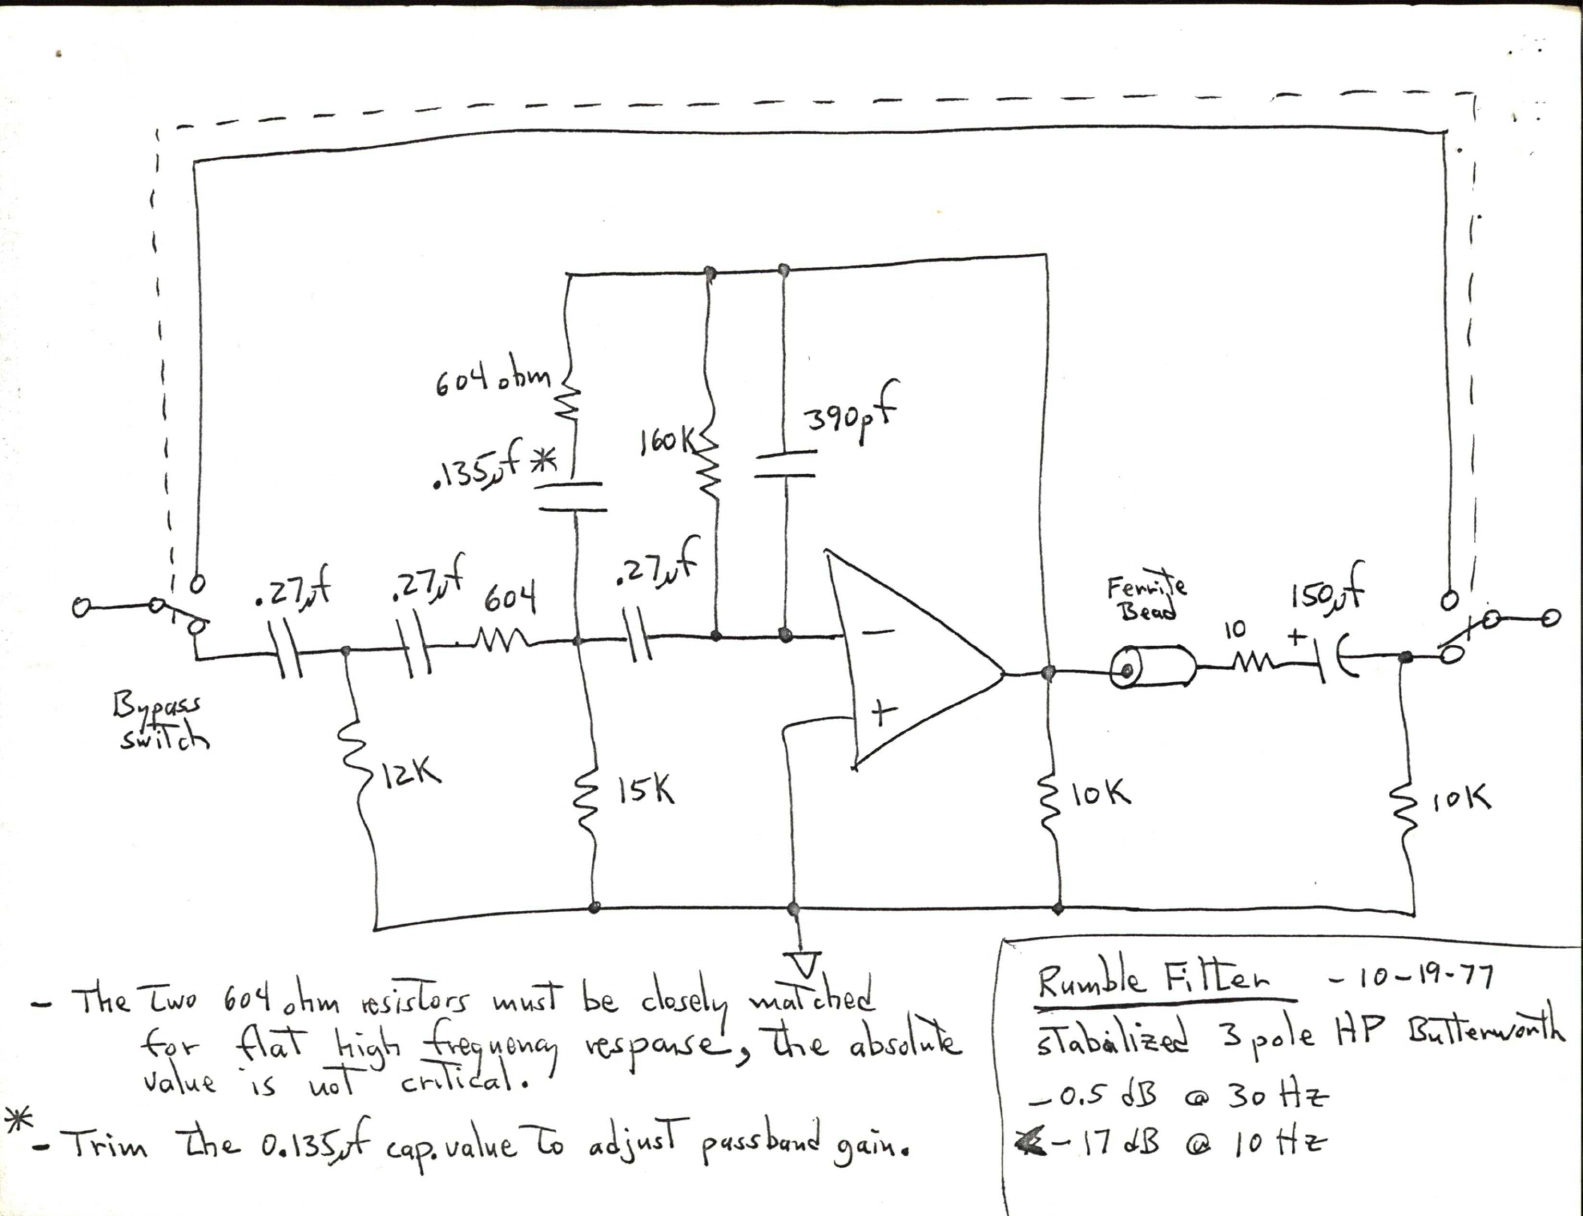 604 ohm
.135µf *
160K
390pf
.27µf
.27µf
604
.27µf
Ferrite
Bead
10
150µf
+
−
+
Bypass
switch
12K
15K
10K
10K
- The two 604 ohm resistors must be closely matched
for flat high frequency response, the absolute
value is not critical.
* - Trim the 0.135µf cap. value to adjust passband gain.
Rumble Filter - 10-19-77
stabilized 3 pole HP Butterworth
-0.5 dB @ 30 Hz
-17 dB @ 10 Hz